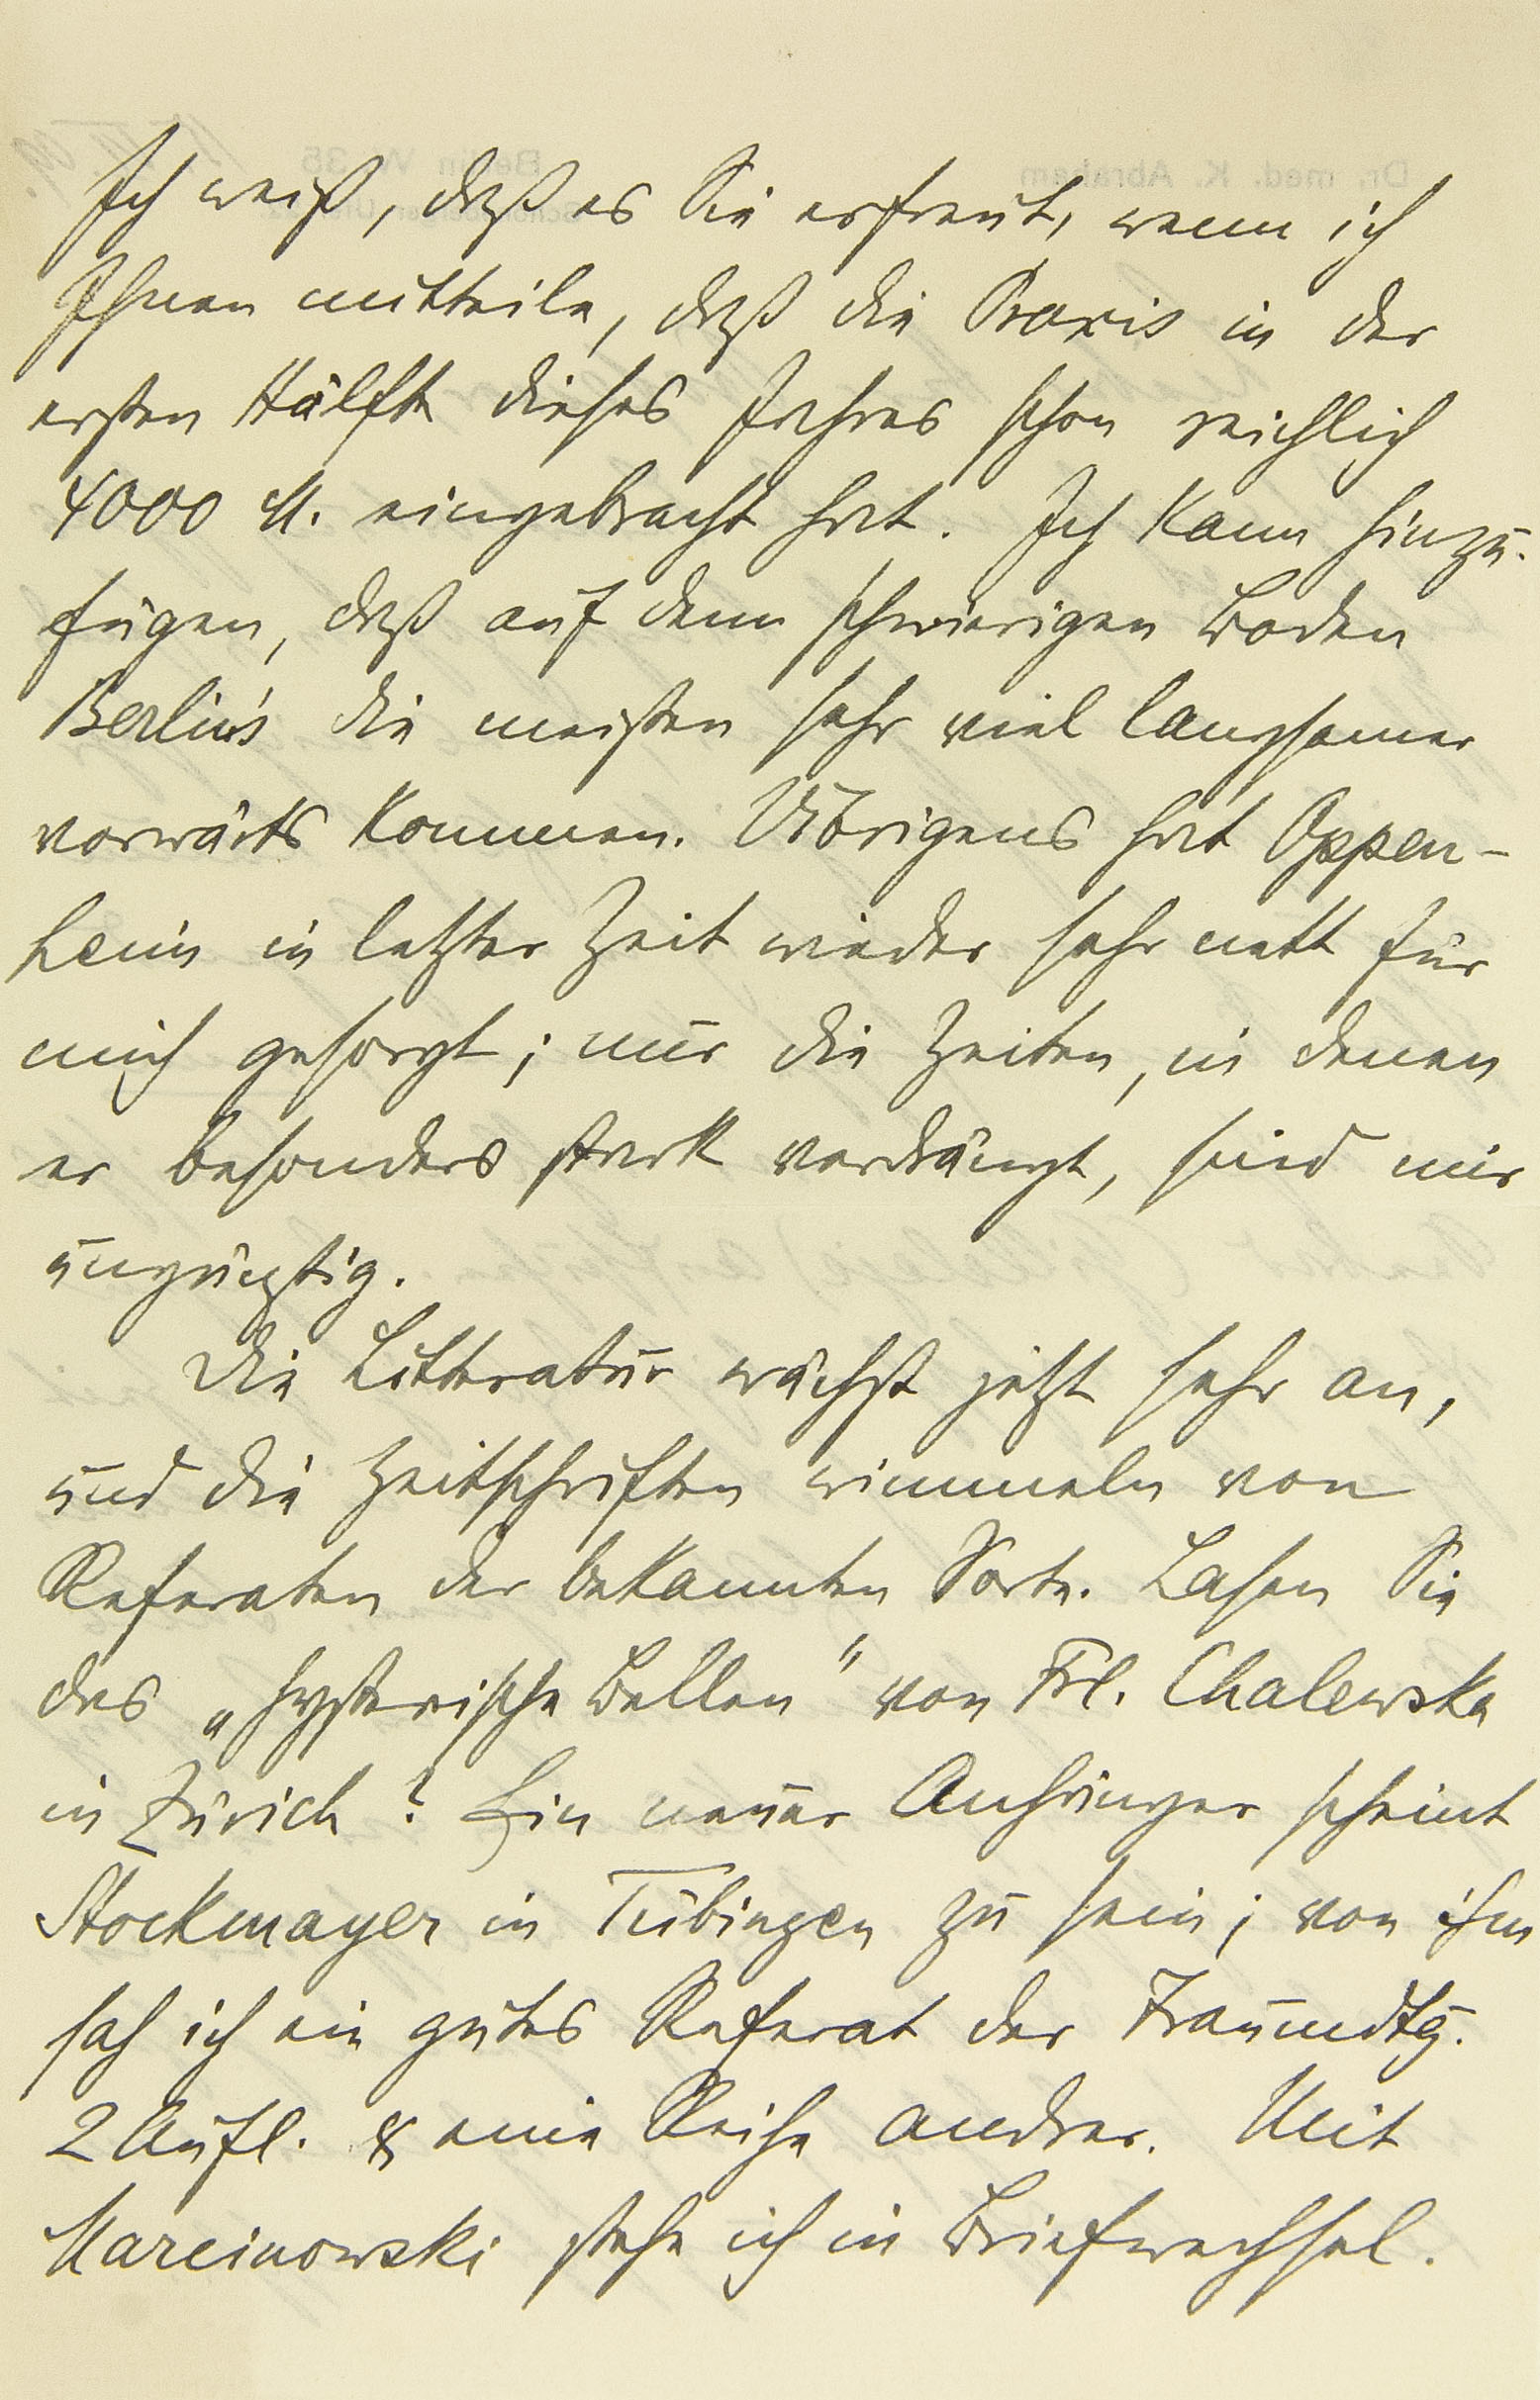 Ich weiß, daß es Sie erfreut, wenn ich
Ihnen mitteile, daß die Praxis in der
ersten Hälfte dieses Jahres schon reichlich
4000 M. eingebracht hat. Ich kann hinzu-
fügen, daß auf dem schwierigen Boden
Berlin's die meisten sehr viel langsamer
vorwärts kommen. Übrigens hat Oppen-
heim in letzter Zeit wieder sehr nett für
mich gesorgt; nur die Zeiten, in denen
er besonders stark verdrängt, sind mir
ungünstig.
Die Litteratur wächst jetzt sehr an,
und die Zeitschriften wimmeln von
Referaten der bekannten Sorte. Lasen Sie
das „hysterische Bellen" von Frl. Chalewska
in Zürich? Ein neuer Anhänger scheint
Stockmayer in Tübingen zu sein; von ihm
sah ich ein gutes Referat der Traumdtg.
2 Aufl. & eine Reihe andrer. Mit
Marcinowski stehe ich in Briefwechsel.
Dr. med. K. Abraham
Berlin W. 35